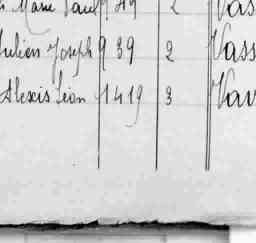 Marie Paul 9 49 2 Vas
Julien Joseph 9 39 2 Vass
Alexis Léon 14 19 3 Vav